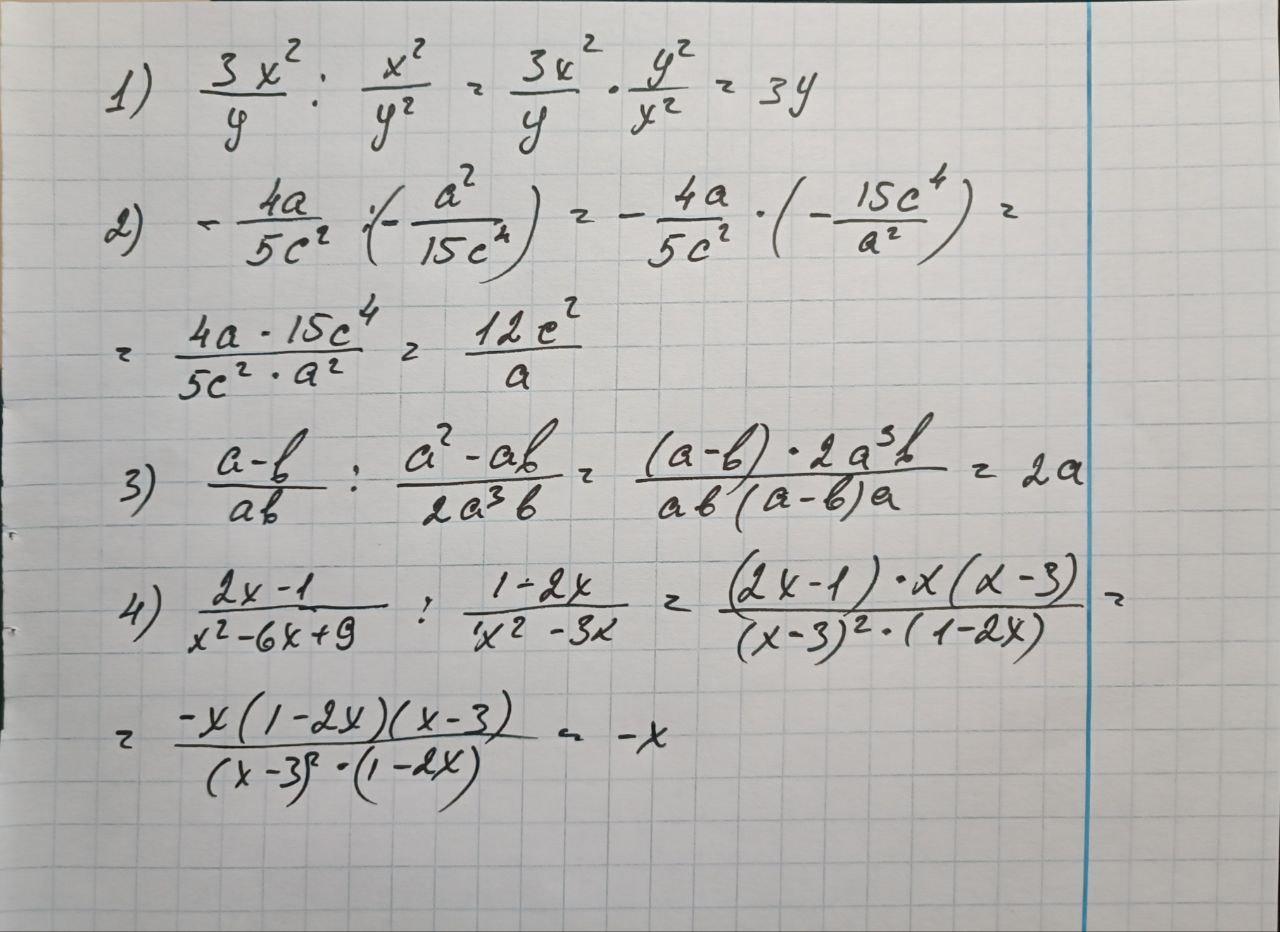 1) 3x²/y : x²/y² = 3x²/y · y²/x² = 3y
2) - 4a/5c² : (- a²/15c⁴) = - 4a/5c² · (- 15c⁴/a²) =
= 4a · 15c⁴/5c² · a² = 12c²/a
3) a-b/ab : a²-ab/2a³b = (a-b) · 2a³b/ab(a-b)a = 2a
4) 2x-1/x²-6x+9 : 1-2x/x²-3x = (2x-1) · x(x-3)/(x-3)² · (1-2x) =
= -x(1-2x)(x-3)/(x-3)² · (1-2x) = -x